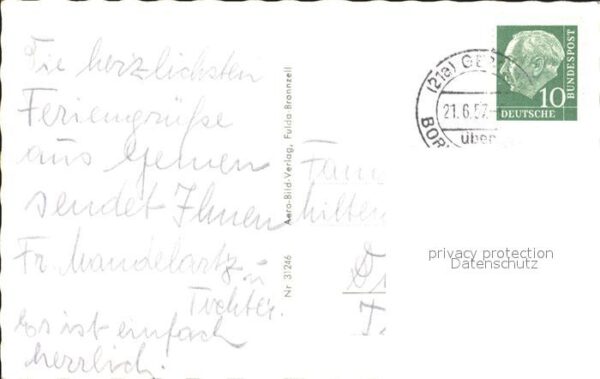 Die herzlichsten
Feriengrüße
aus Gemen
sendet Ihnen
Fr. Mandelartz
u
Tochter.
Es ist einfach
herrlich.
Nr 31246 Aero-Bild-Verlag, Fulda Brannzell
(21a) GE
21.6.57
BOR
über
10
DEUTSCHE
BUNDESPOST
Fam
hilten
privacy protection
Datenschutz